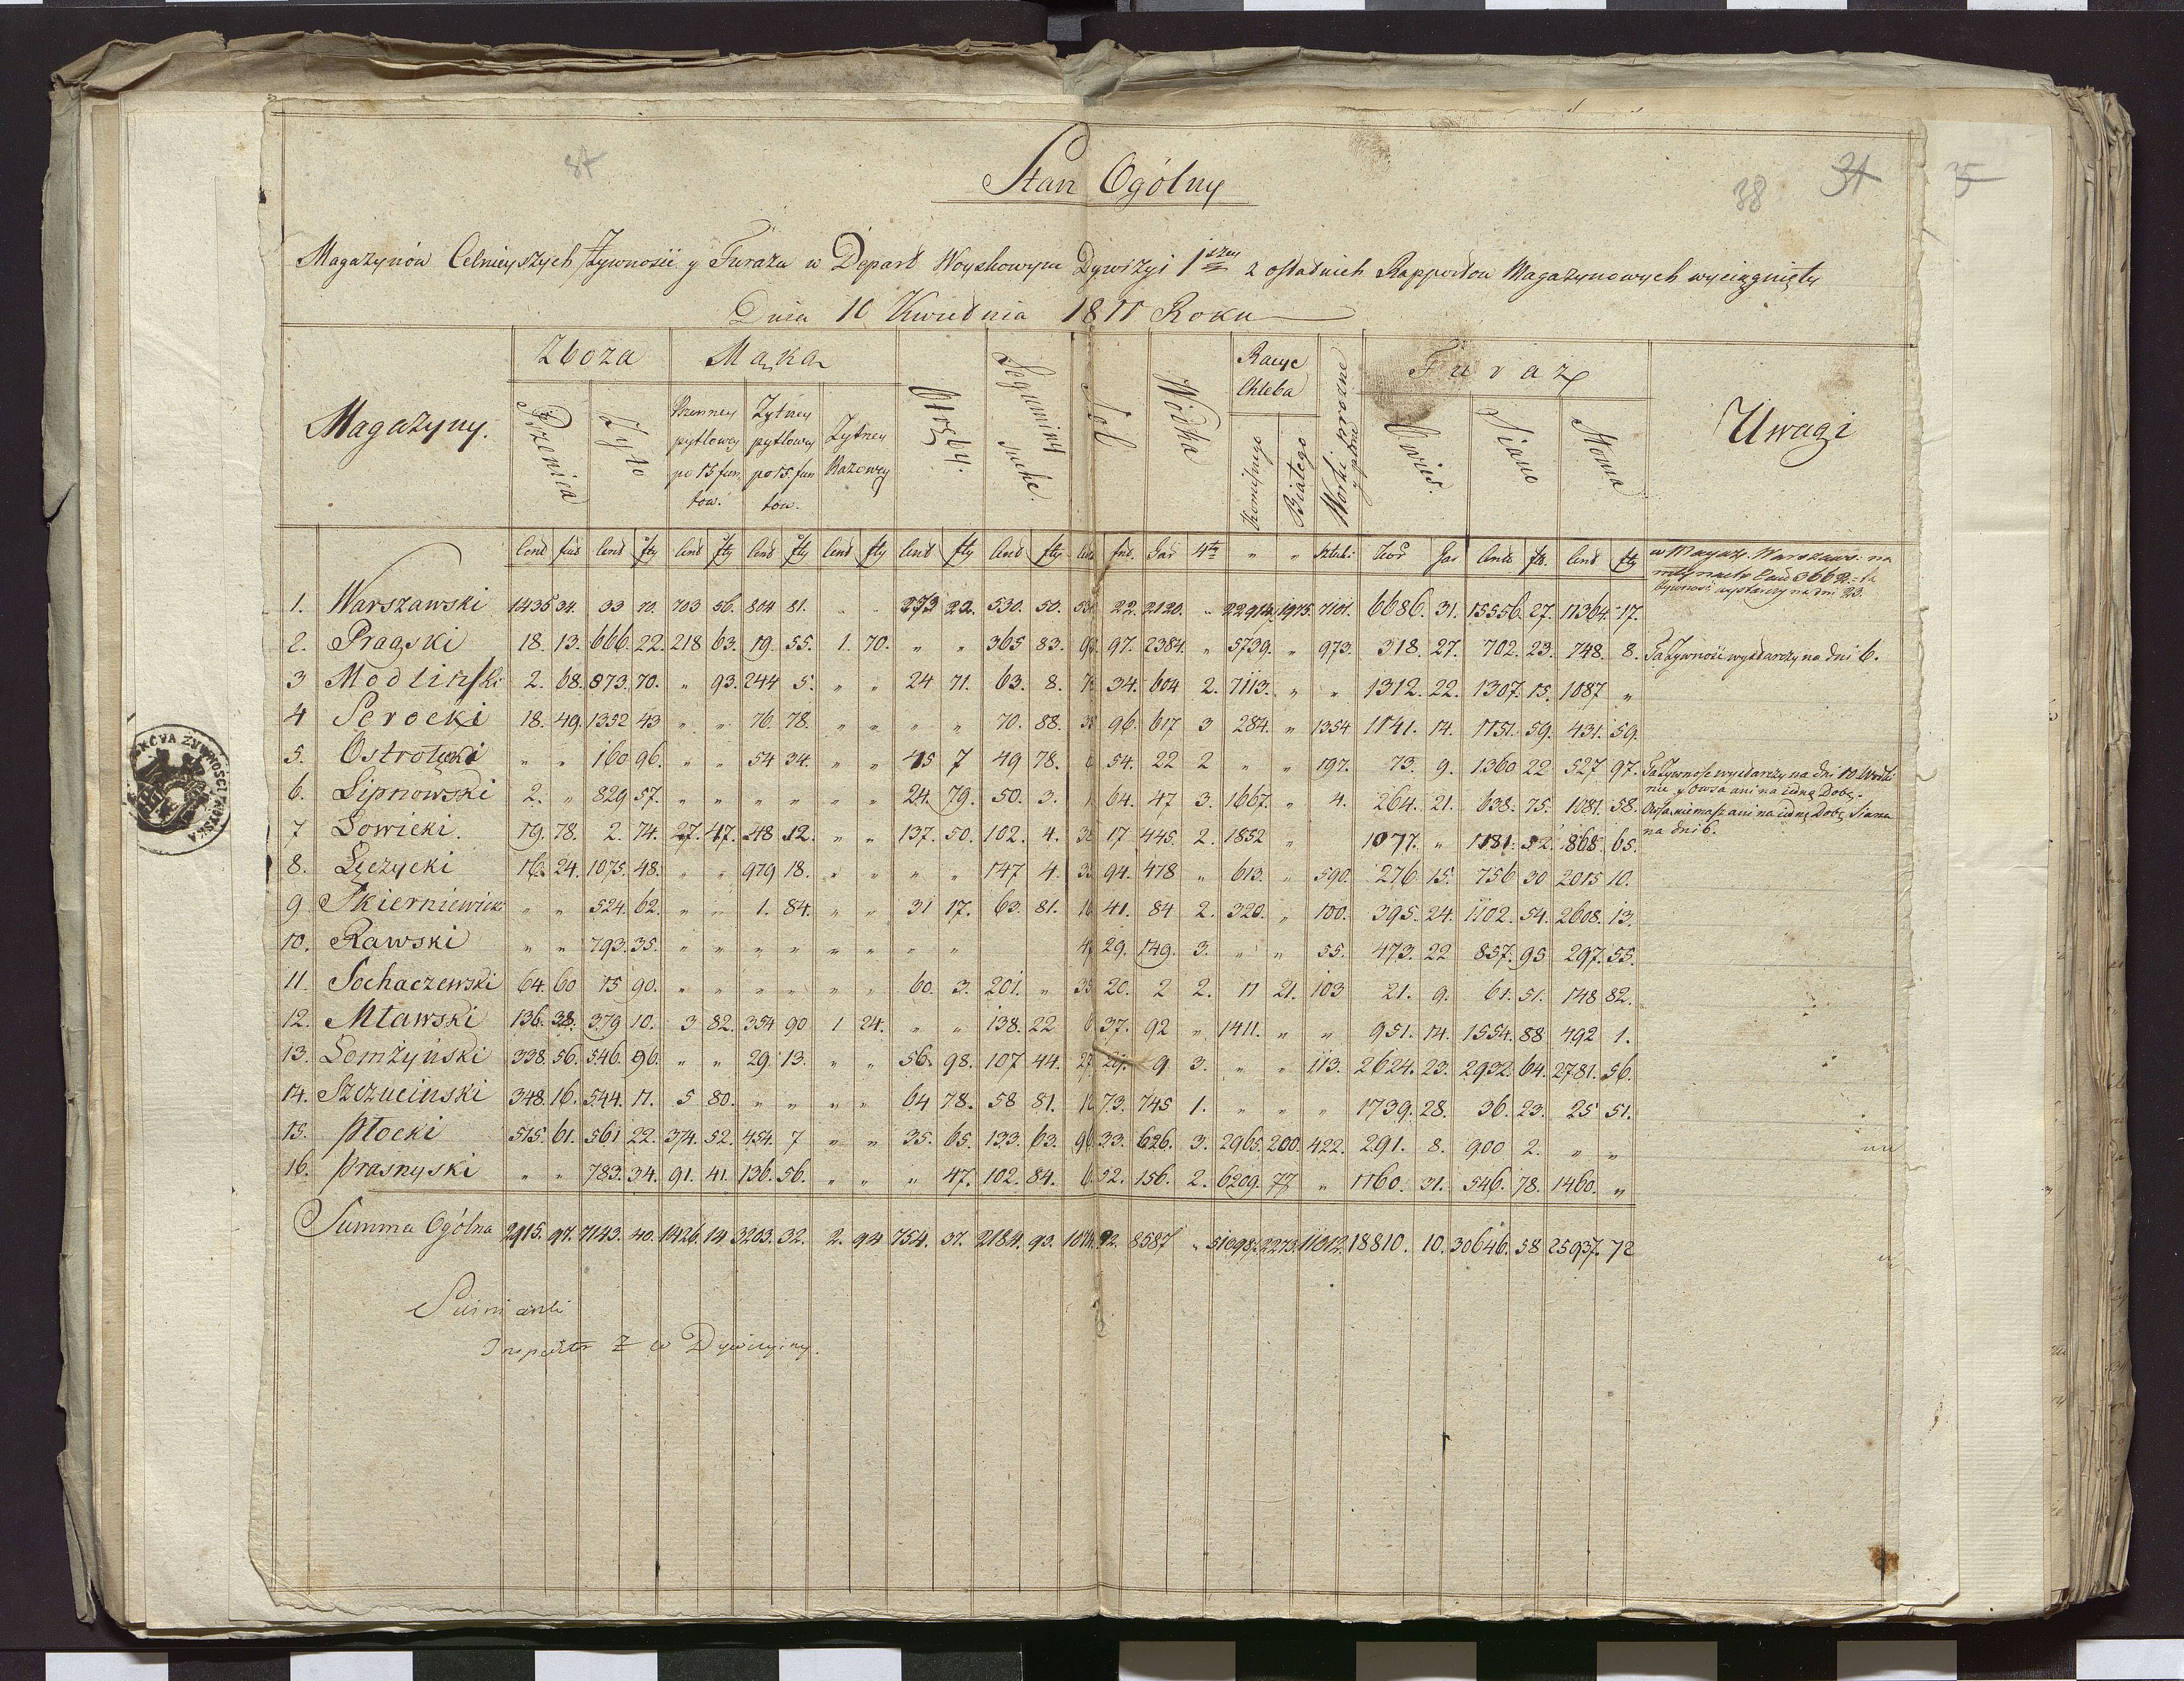 37
Stan Ogólny
38 31 35
Magazynów Celnieyszych Żywności y Furażu w Depart Woyskowym Dywizyi 1szey z ostatnich Rapportow Magazynowych wyciągnięty
Dnia 10 Kwietnia 1811 Roku
Magazyny. Zboża Mąka Otręby. Legumina suche Sol Wódka Racye Chleba Worki prozne Furaż Uwagi
Pszenica Żyto Pszenney pytlowey po 15 funtow. Żytney pytlowey po 15 funtow. Żytney Razowey Komiśnego Białego Owies. Siano Słoma
Cent fun Cent fty Cent fty Cent fty Cent fty Cent fty Cent fty fnt. Gar 4ty " " Sztuk: Kor Gar Cent ft. Cent fty
w Magaz. Warszaws: na
1. Warszawski 1435 34. 33 70. 703 56. 804 81. " " 273 22. 530. 50. 22. 2120. " 22914. 1975. 7101. 6686. 31. 15556. 27. 11364. 17.
2. Pragski 18. 13. 666. 22. 218 63. 19. 55. 1. 70. " " 365 83. 97. 2384. " 5739. " 973. 318. 27. 702. 23. 748. 8. Ta Żywność wystarczy na dni 6.
3 Modlinski 2. 68. 873. 70. " 93. 244 5. " " 24 71. 63. 8. 34. 604 2. 7113. " " 1312. 22. 1307. 15. 1087 "
4 Serocki 18. 49. 1352 43 " " 76. 78. " " " " 70. 88. 96. 617 3 284. " 1354 1141. 14. 1151. 59. 431. 59.
5. Ostrołęcki " " 160 96. " " 54 34. " " 45 7 49 78. 54. 22 2 " " 197. 73. 9. 1360 22 527 97. Ta Żywnosc wystarczy na dni 10 Wodki
nie y Owsa ani na iednę Dobę.
6. Lipnowski 2. " 829 57. " " " " " " 24. 79. 50. 3. 64. 47 3. 1667. " 4. 264. 21. 638. 75. 1081. 58. Owsa niemasz ani na iednę Dobę, Siana
na dni 6.
7 Łowicki. 19. 78. 2. 74. 27. 47. 48 12. " " 137. 50. 102. 4. 17 445. 2. 1852 " 1077. " 1181. 52. 868. 65.
8. Łęczycki 16. 24. 1075. 48. " " 979 18. " " " " 147 4. 94. 478 " 613. " 590. 276 15. 756 30 2015 10.
9 Skierniewicki " " 524. 62. " " 1. 84. " " 31 17. 63. 81. 41. 84 2. 320. " 100. 395. 24. 1102. 54. 2608. 13.
10. Rawski " " 793. 35. " " " " " " " " 29. 149. 3. " " 55. 473. 22 857. 95 297. 55.
11. Sochaczewski 64. 60 15 90. " " " " " " 60. 3. 201. " 20. 2 2. 11 21. 103 21. 9. 61. 51. 148 82.
12. Mławski 136. 38. 379 10. 3 82. 354 90 1 24. " " 138. 22 37. 92 " 1411. " " 951. 14. 1554. 88 492 1.
13. Łomżyński 338. 56. 546. 96. " " 29. 13. " " 56. 98. 107 44. 29. 9 3. " " 113. 2624. 23. 2932. 64. 2781. 56.
14. Szczuciński 348. 16. 544. 11. 5 80. " " " " 64 78. 58 81. 73. 745 1. " " " 1739. 28. 36. 23. 25 51.
15. Płocki 515. 61. 561 22. 374. 52. 454. 7 " " 35. 65. 133. 63. 33. 626. 3. 2965. 200. 422. 291. 8. 900 2. " "
16. Prasnyski " " 783. 34. 91. 41. 136. 56. " " " 47. 102. 84. 52. 156. 2. 6209. 77 " 1160. 31. 546. 78. 1460. "
Summa Ogólna 2915. 97. 7143. 40. 1426. 14. 3203. 32. 2. 94 754. 37. 2184. 93. 92. 8587 " 51098. 2273. 11012. 18810. 10. 30646. 58 25937. 72
Inspektor Ż w Dywizyiny.